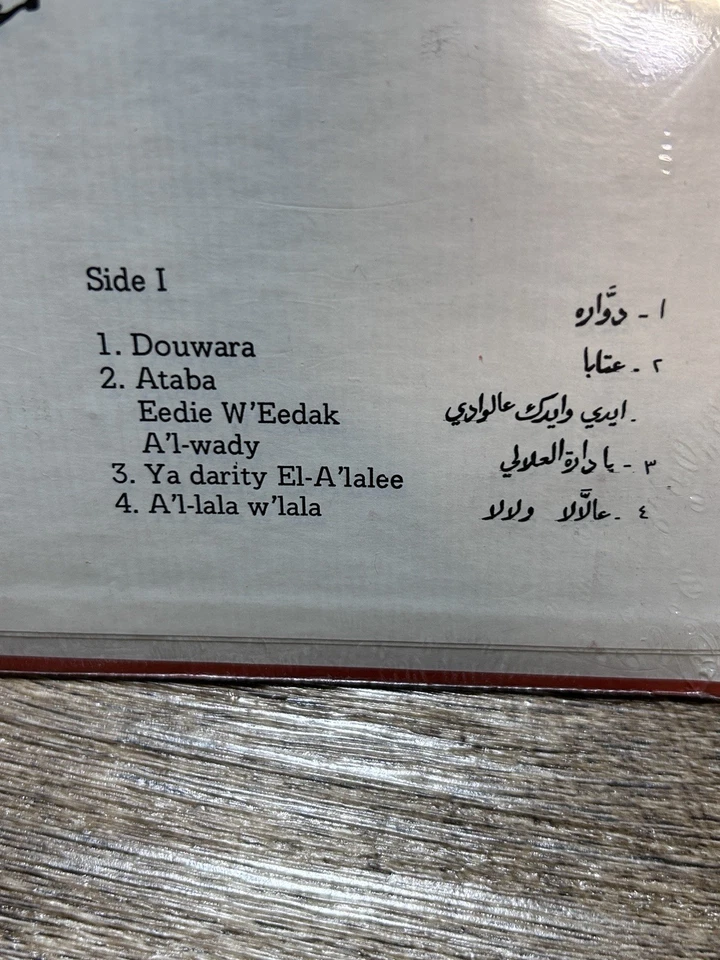 Side I
1. Douwara
2. Ataba
Eedie W'Eedak
A'l-wady
3. Ya darity El-A'lalee
4. A'l-lala w'lala
١ - دوَّاره
٢ - عتابا
ايدي وايدك عالوادي
٣ - يا دارة العلالي
٤ - عالَّالا ولالا